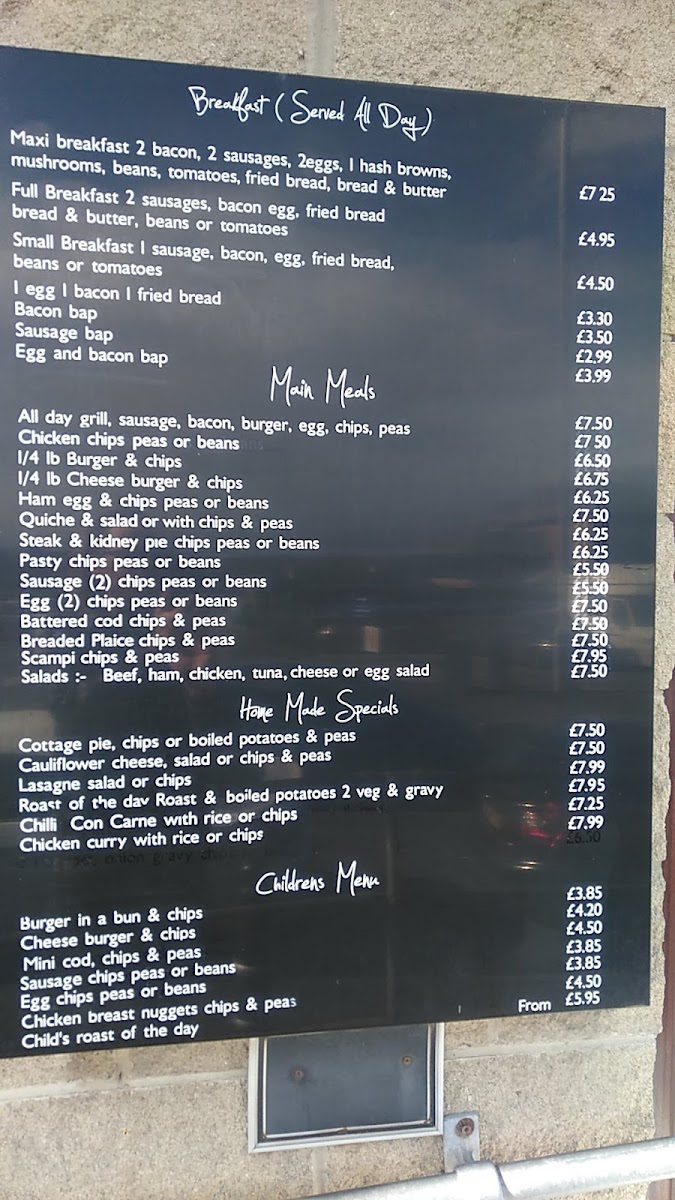 Breakfast (Served All Day)
Maxi breakfast 2 bacon, 2 sausages, 2eggs, 1 hash browns,
mushrooms, beans, tomatoes, fried bread, bread & butter £7 25
Full Breakfast 2 sausages, bacon egg, fried bread
bread & butter, beans or tomatoes £4.95
Small Breakfast 1 sausage, bacon, egg, fried bread,
beans or tomatoes £4.50
1 egg 1 bacon 1 fried bread £3.30
Bacon bap £3.50
Sausage bap £2.99
Egg and bacon bap £3.99
Main Meals
All day grill, sausage, bacon, burger, egg, chips, peas
Chicken chips peas or beans
1/4 lb Burger & chips
1/4 lb Cheese burger & chips
Ham egg & chips peas or beans
Quiche & salad or with chips & peas
Steak & kidney pie chips peas or beans
Pasty chips peas or beans
Sausage (2) chips peas or beans
Egg (2) chips peas or beans
Battered cod chips & peas
Breaded Plaice chips & peas
Scampi chips & peas
Salads :- Beef, ham, chicken, tuna, cheese or egg salad
£7.50
£7 50
£6.50
£6.75
£6.25
£7.50
£6.25
£6.25
£5.50
£5.50
£7.50
£7.50
£7.50
£7.95
£7.50
Home Made Specials
Cottage pie, chips or boiled potatoes & peas £7.50
Cauliflower cheese, salad or chips & peas £7.50
Lasagne salad or chips £7.99
Roast of the day Roast & boiled potatoes 2 veg & gravy £7.95
Chilli Con Carne with rice or chips £7.25
Chicken curry with rice or chips £7.99
£6.50
Childrens Menu
Burger in a bun & chips £3.85
Cheese burger & chips £4.20
Mini cod, chips & peas £4.50
Sausage chips peas or beans £3.85
Egg chips peas or beans £3.85
Chicken breast nuggets chips & peas £4.50
Child's roast of the day From £5.95